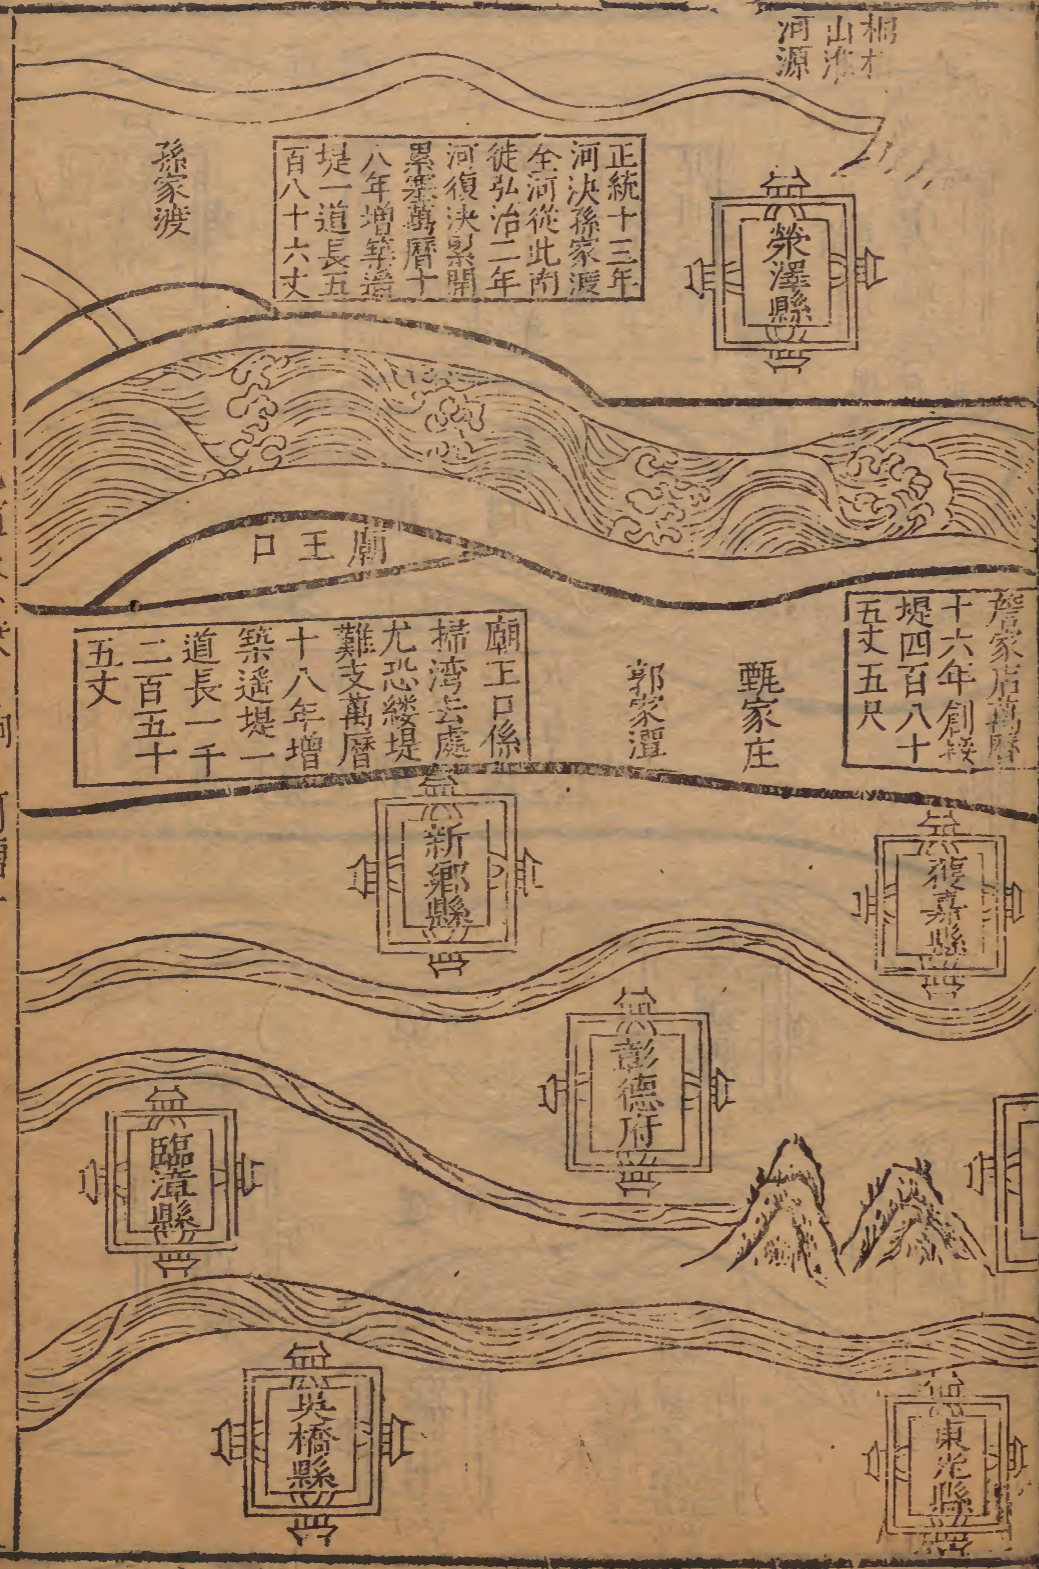 桐柏
山淮
河源
滎澤縣
正統十三年
河決孫家渡
全河從此南
徙弘治二年
河復決累開
累塞萬曆十
八年增築遙
堤一道長五
百八十六丈
孫家渡
廟王口
詹家店萬曆
十六年創築
堤四百八十
五丈五尺
甄家庄
郭家潭
廟王口係
掃湾去處
尤恐縷堤
難支萬曆
十八年增
築遙堤一
道長一千
二百五十
五丈
獲嘉縣
新鄉縣
彰德府
臨漳縣
東光縣
吳橋縣